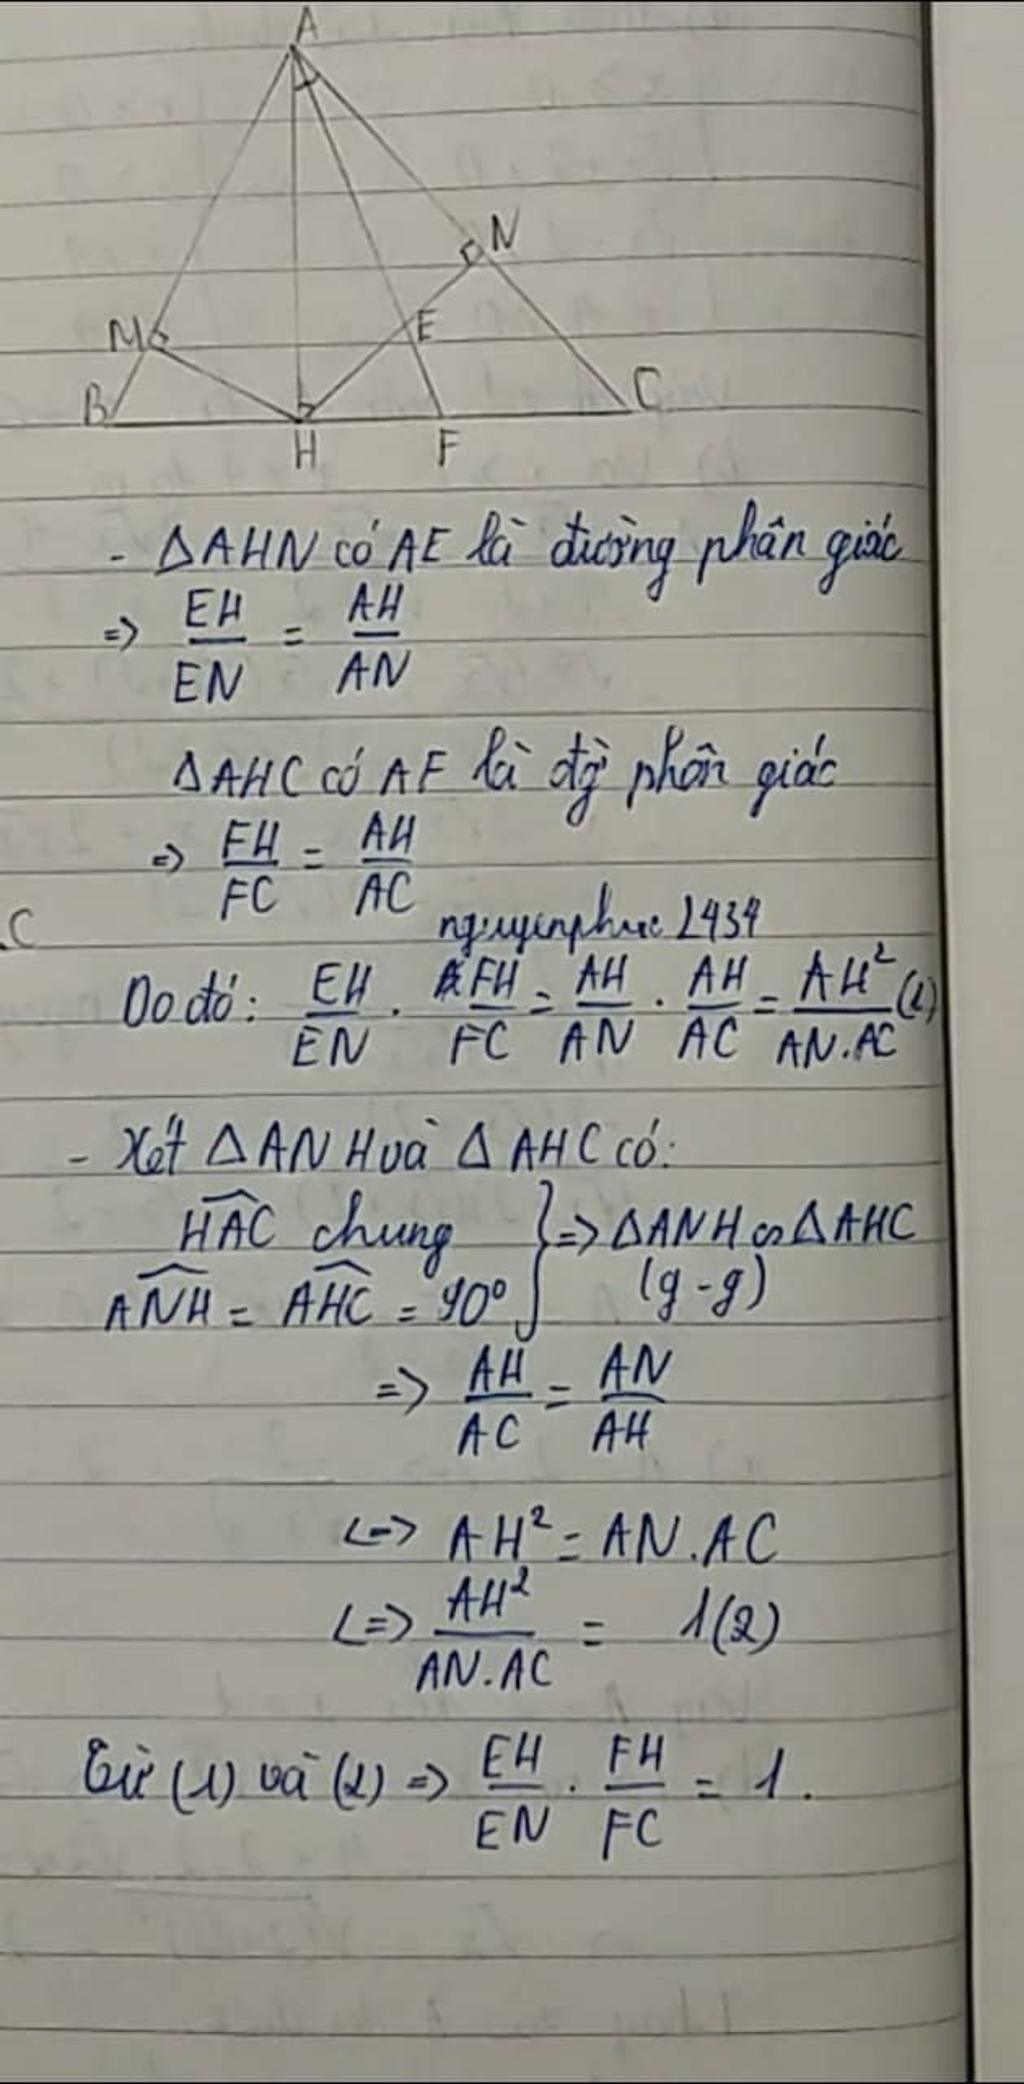 A
N
M
E
B
C
H
F
- ΔAHN có AE là đường phân giác
=> EH/EN = AH/AN
ΔAHC có AF là đg phân giác
=> FH/FC = AH/AC
C
nguyenphuc2434
Do đó: EH/EN . FH/FC = AH/AN . AH/AC = AH²/AN.AC (1)
- Xét ΔANH và ΔAHC có:
HAC chung
ANH = AHC = 90° } => ΔANH ∽ ΔAHC
(g-g)
=> AH/AC = AN/AH
<=> AH² = AN.AC
<=> AH²/AN.AC = 1 (2)
Từ (1) và (2) => EH/EN . FH/FC = 1.